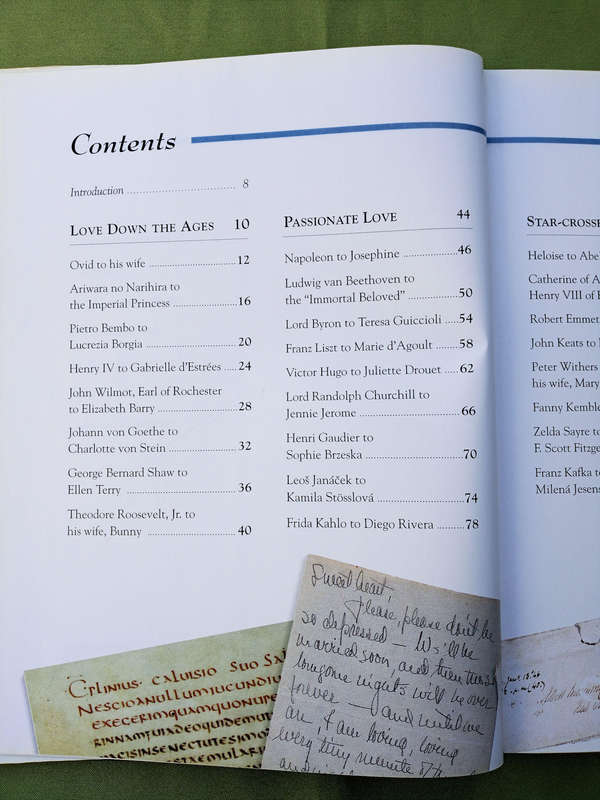 Contents
Introduction ........ 8
LOVE DOWN THE AGES 10
Ovid to his wife ........ 12
Ariwara no Narihira to
the Imperial Princess ........ 16
Pietro Bembo to
Lucrezia Borgia ........ 20
Henry IV to Gabrielle d'Estrées ..... 24
John Wilmot, Earl of Rochester
to Elizabeth Barry ........ 28
Johann von Goethe to
Charlotte von Stein ........ 32
George Bernard Shaw to
Ellen Terry ........ 36
Theodore Roosevelt, Jr. to
his wife, Bunny ........ 40
PASSIONATE LOVE 44
Napoleon to Josephine ........ 46
Ludwig van Beethoven to
the "Immortal Beloved" ........ 50
Lord Byron to Teresa Guiccioli ..... 54
Franz Liszt to Marie d'Agoult ..... 58
Victor Hugo to Juliette Drouet ..... 62
Lord Randolph Churchill to
Jennie Jerome ........ 66
Henri Gaudier to
Sophie Brzeska ........ 70
Leoš Janáček to
Kamila Stösslová ........ 74
Frida Kahlo to Diego Rivera ........ 78
STAR-CROSSE
Heloise to Abe
Catherine of A
Henry VIII of
Robert Emmet
John Keats to
Peter Withers
his wife, Mary
Fanny Kemble
Zelda Sayre to
F. Scott Fitzge
Franz Kafka to
Milená Jesens
Sweetheart,
Please, please don't be
so depressed — We'll be
married soon, and then these
lonesome nights will be over
forever — and until we
are, I am loving, loving
every tiny minute of the
C·PLINIUS· CALUISIO SUO
NESCIOANULLUMIUCUNDIU
EXECERIMQUAMQUONUPE